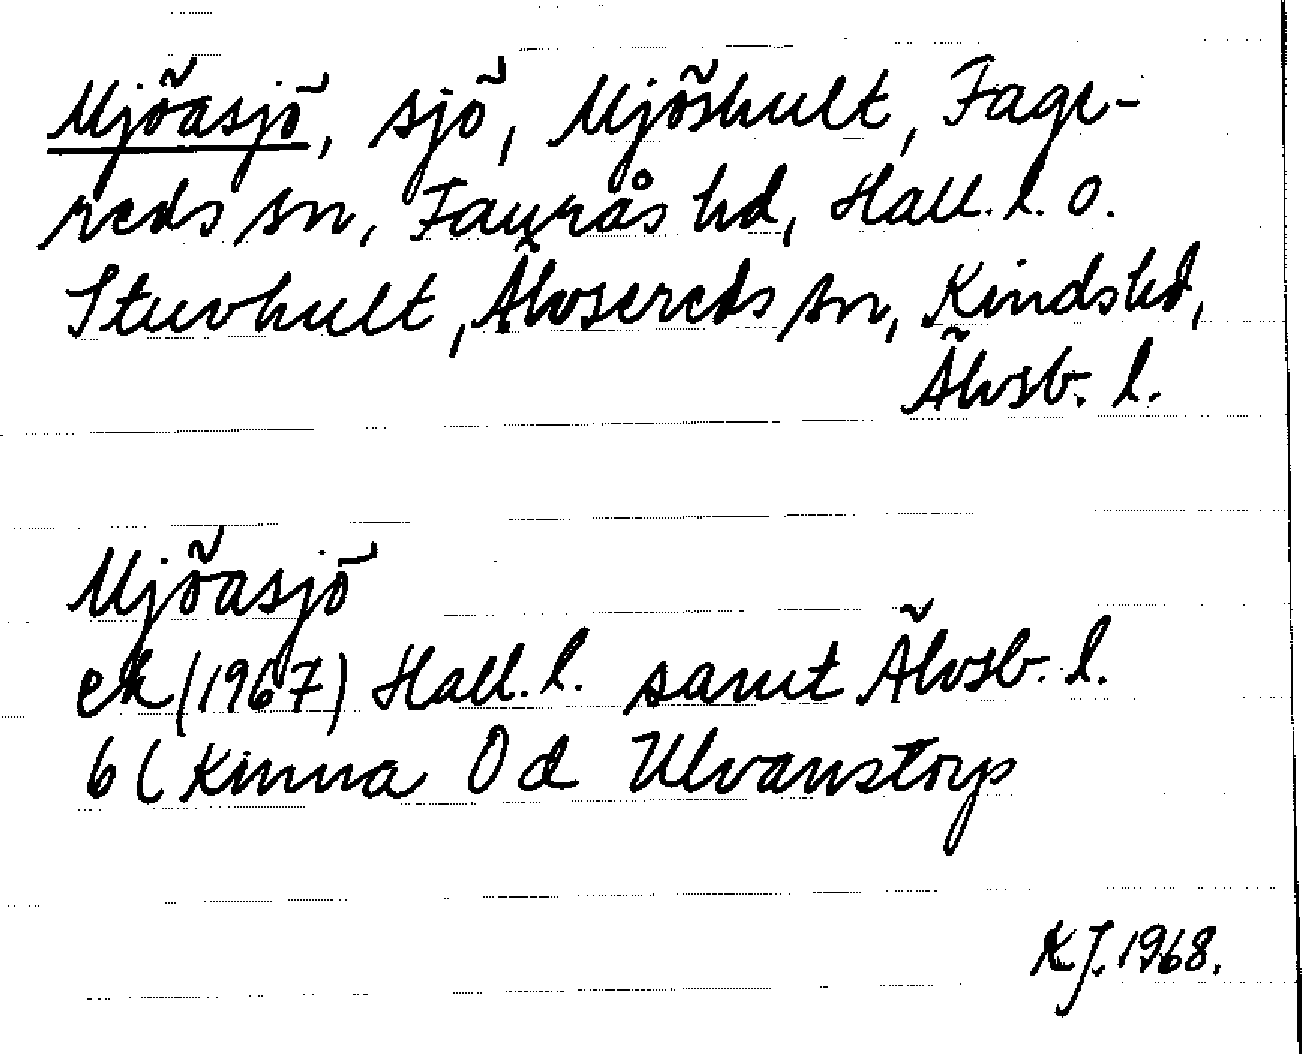 Mjöasjö, sjö, Mjöshult, Fage-
reds sn, Faurås hd, Hall. l. o.
Stuvhult, Älvsereds sn, Kinds hd,
Älvsb. l.
Mjöasjö
ek (1967) Hall. l. samt Älvsb. l.
6 C Kinna 0 d Ulvanstorp
KJ. 1968.